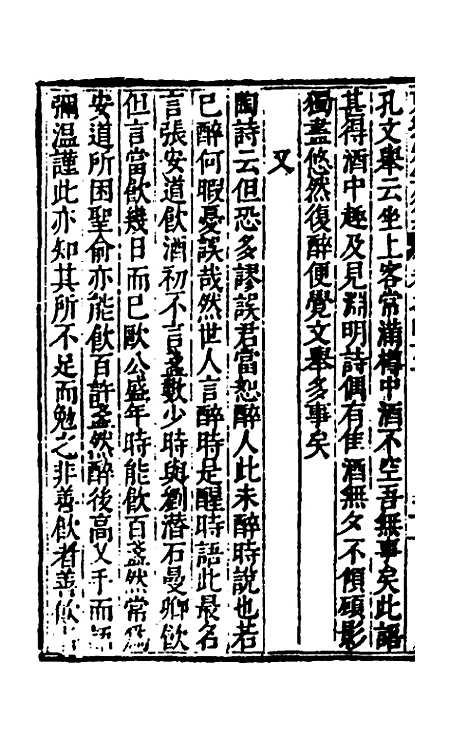 孔文舉云坐上客常滿樽中酒不空吾無事矣此語
甚得酒中趣及見淵明詩偶有佳酒無夕不傾顧影
獨盡悠然復醉便覺文舉多事矣
又
陶詩云但恐多謬誤君當恕醉人此未醉時說也若
已醉何暇憂誤哉然世人言醉時是醒時語此最名
言張安道飲酒初不言盞數少時與劉潛石曼卿飲
但言當飲幾日而已歐公盛年時能飲百盞然常為
安道所困聖俞亦能飲百許盞然醉後高叉手而語
彌温謹此亦知其所不足而勉之非善飲者善飲